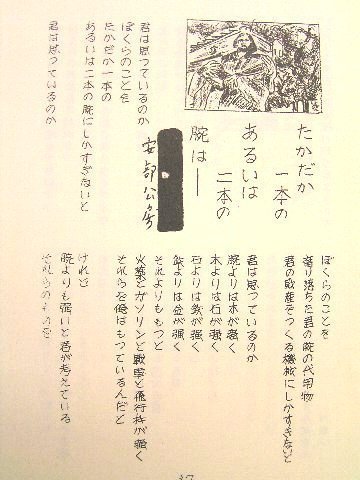 たかだか
一本の
あるいは
二本の
腕は――
安部公房
君は思つているのか
ぼくらのことを
たかだか一本の
あるいは二本の腕にしかすぎないと
君は思つているのか
ぼくらのことを
落ち落ちた君の腕の代用物
君の欲産をつくる機械にしかすぎないと
君は思つているのか
腕よりは木が強く
木よりは石が強く
石よりは鉄が強く
鉄よりは金が強く
それよりももつと
火薬とガソリンと戦車と飛行機が強く
それらを俺はもつているんだと
けれど
腕よりも強いと君が考えている
それらのものを
37